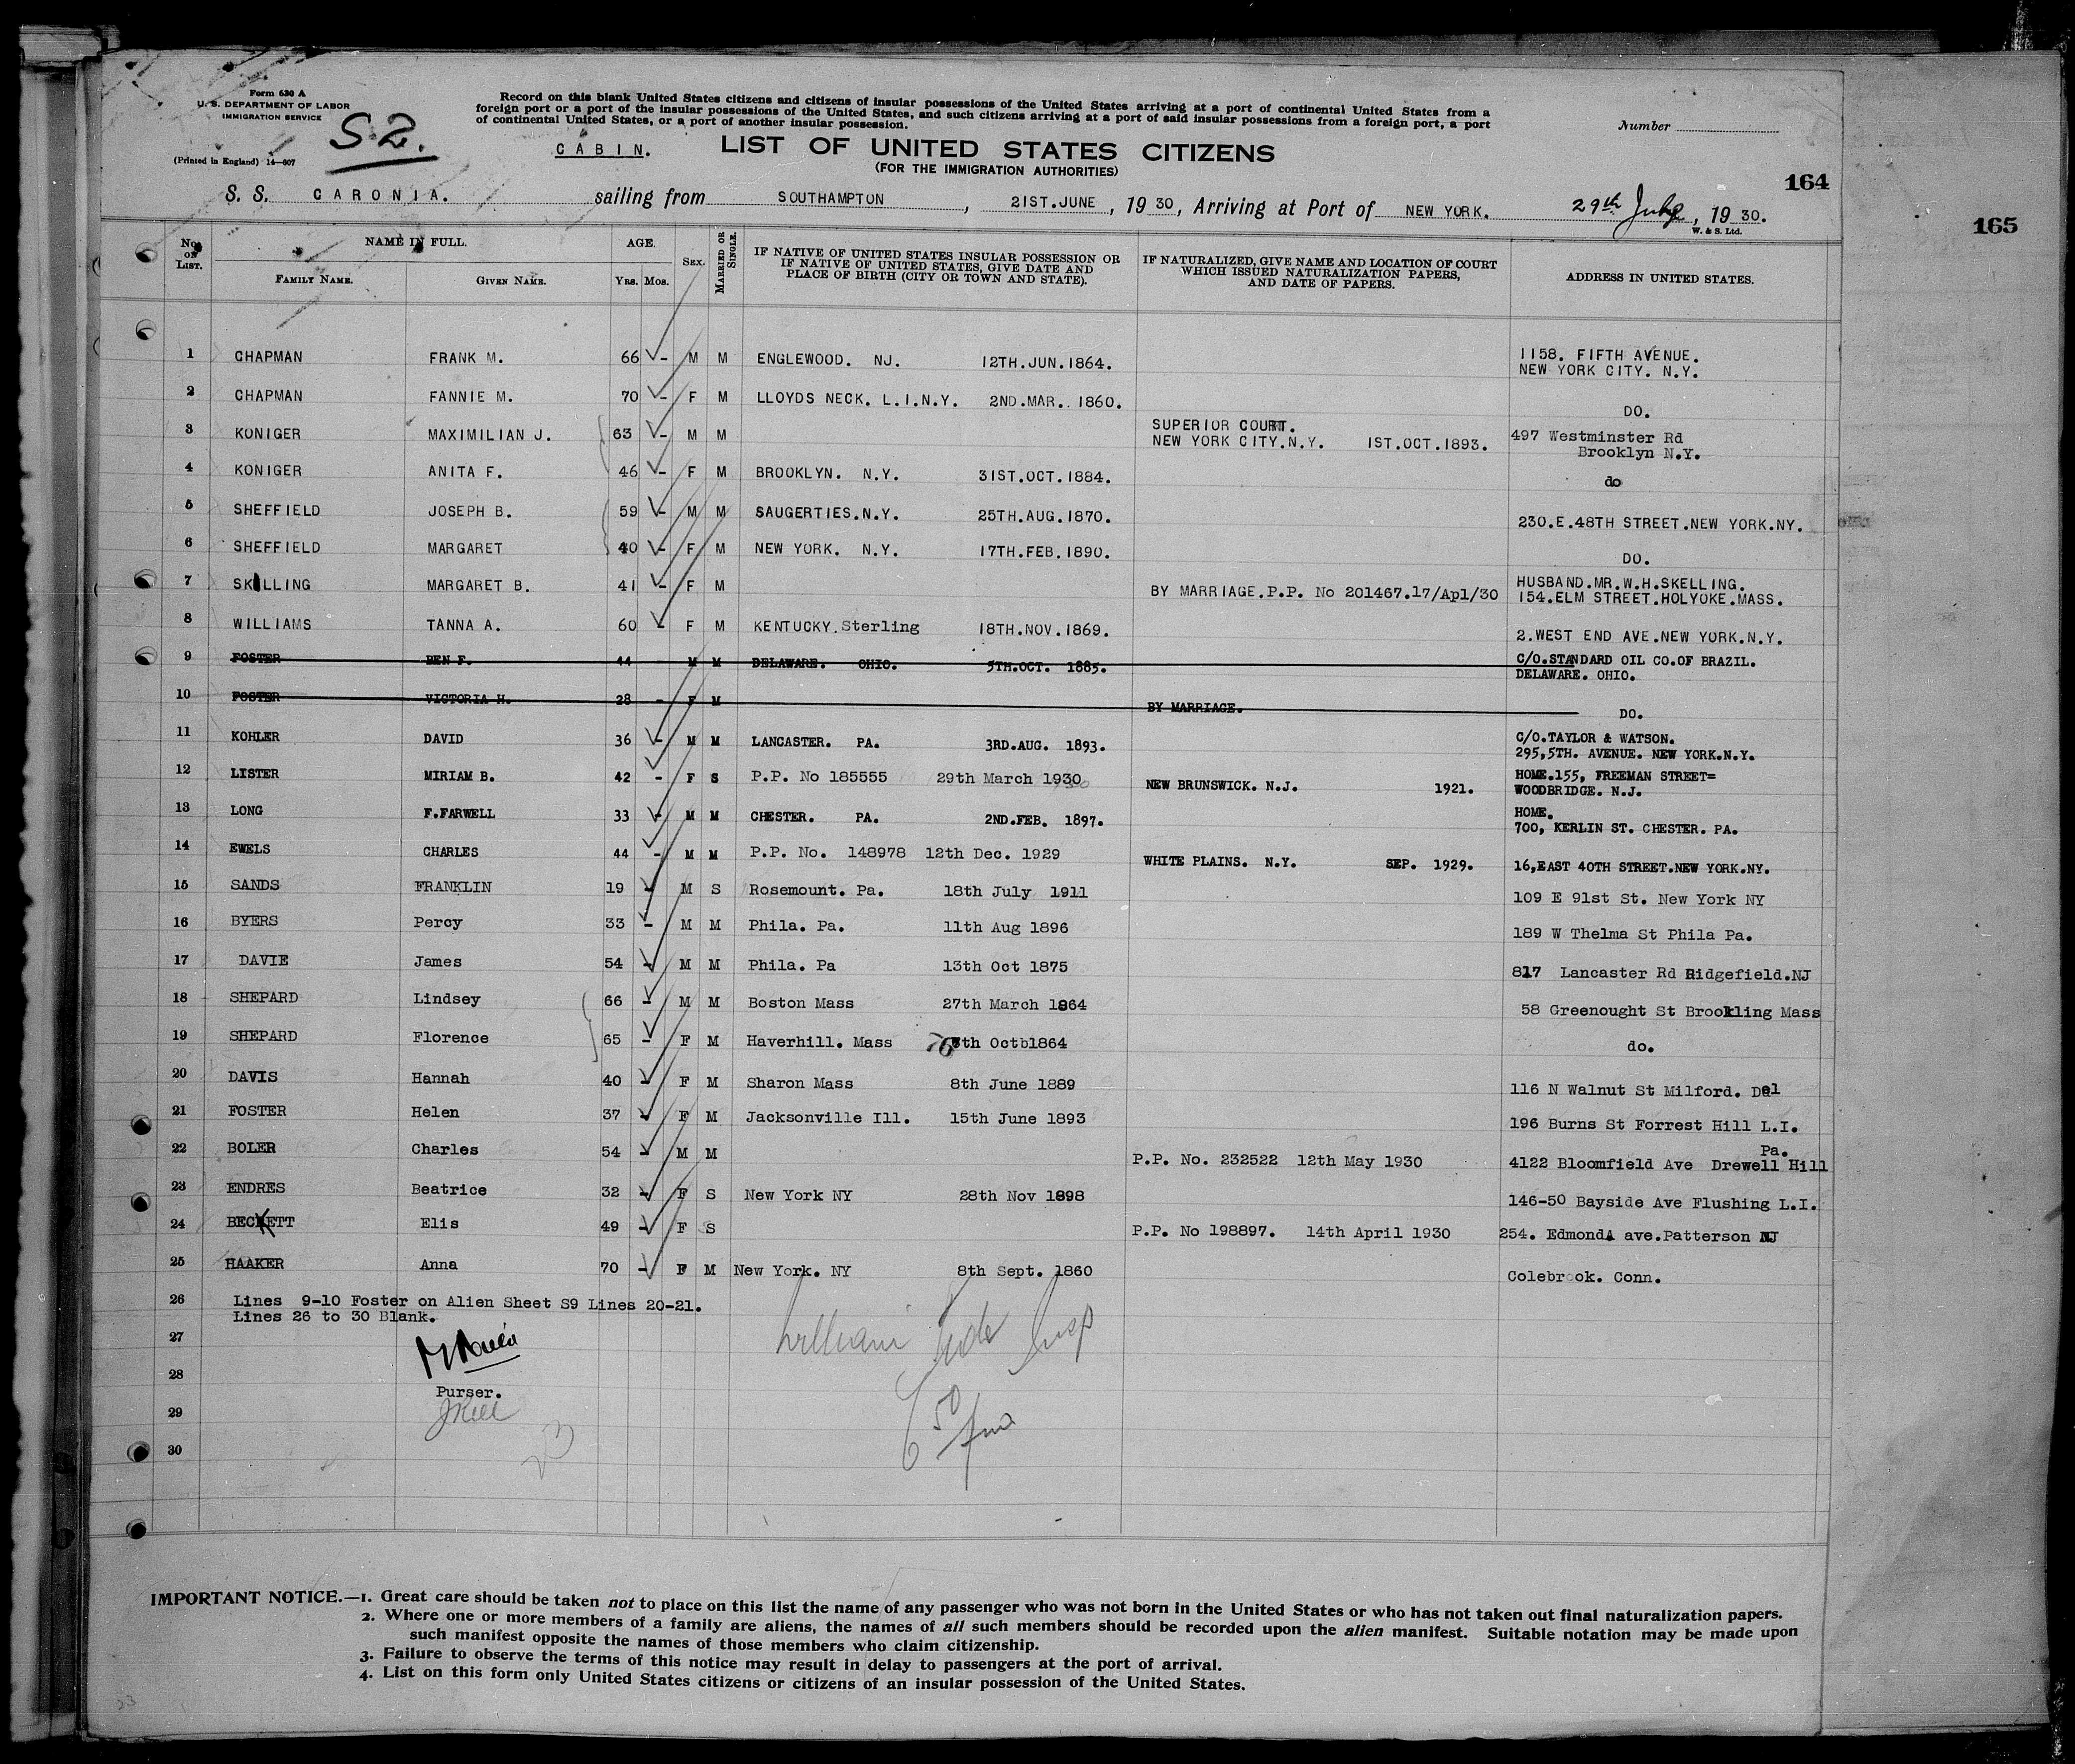 Form 630 A
U. S. DEPARTMENT OF LABOR
IMMIGRATION SERVICE
S2.
(Printed in England) 14—607
Record on this blank United States citizens and citizens of insular possessions of the United States arriving at a port of continental United States from a
foreign port or a port of the insular possessions of the United States, and such citizens arriving at a port of said insular possessions from a foreign port, a port
of continental United States, or a port of another insular possession.
Number
CABIN.
LIST OF UNITED STATES CITIZENS
(FOR THE IMMIGRATION AUTHORITIES)
164
165
S. S. CARONIA. sailing from SOUTHAMPTON, 21ST.JUNE, 19 30, Arriving at Port of NEW YORK. 29th, 19 30.
W. & S. Ltd.
No. on List. NAME IN FULL. Family Name. Given Name. AGE. Yrs. Mos. Sex. Married or Single. IF NATIVE OF UNITED STATES INSULAR POSSESSION OR IF NATIVE OF UNITED STATES, GIVE DATE AND PLACE OF BIRTH (CITY OR TOWN AND STATE). IF NATURALIZED, GIVE NAME AND LOCATION OF COURT WHICH ISSUED NATURALIZATION PAPERS, AND DATE OF PAPERS. ADDRESS IN UNITED STATES.
1 CHAPMAN FRANK M. 66 - M M ENGLEWOOD. NJ. 12TH.JUN.1864. 1158. FIFTH AVENUE. NEW YORK CITY. N.Y.
2 CHAPMAN FANNIE M. 70 - F M LLOYDS NECK. L.I.N.Y. 2ND.MAR. 1860. DO.
3 KONIGER MAXIMILIAN J. 63 - M M SUPERIOR COURT. NEW YORK CITY.N.Y. 1ST.OCT.1893. 497 Westminster Rd Brooklyn N.Y.
4 KONIGER ANITA F. 46 - F M BROOKLYN. N.Y. 31ST.OCT.1884. do
5 SHEFFIELD JOSEPH B. 59 - M M SAUGERTIES.N.Y. 25TH.AUG.1870. 230.E.48TH STREET.NEW YORK.NY.
6 SHEFFIELD MARGARET 40 - F M NEW YORK. N.Y. 17TH.FEB.1890. DO.
7 SKILLING MARGARET B. 41 - F M BY MARRIAGE.P.P. No 201467.17/Apl/30 HUSBAND.MR.W.H.SKELLING. 154.ELM STREET.HOLYOKE.MASS.
8 WILLIAMS TANNA A. 60 - F M KENTUCKY.Sterling 18TH.NOV.1869. 2.WEST END AVE.NEW YORK.N.Y.
9 FOSTER BEN F. 44 M M DELAWARE. OHIO. 5TH.OCT. 1885. C/O.STANDARD OIL CO.OF BRAZIL. DELAWARE. OHIO.
10 FOSTER VICTORIA H. 28 - F M BY MARRIAGE. DO.
11 KOHLER DAVID 36 - M M LANCASTER. PA. 3RD.AUG. 1893. C/O.TAYLOR & WATSON. 295,5TH. AVENUE. NEW YORK.N.Y.
12 LISTER MIRIAM B. 42 - F S P.P. No 185555 29th March 1930 NEW BRUNSWICK. N.J. 1921. HOME.155, FREEMAN STREET= WOODBRIDGE. N.J.
13 LONG F.FARWELL 33 - M M CHESTER. PA. 2ND.FEB. 1897. HOME. 700, KERLIN ST. CHESTER. PA.
14 EWELS CHARLES 44 - M M P.P. No. 148978 12th Dec. 1929 WHITE PLAINS. N.Y. SEP. 1929. 16,EAST 40TH STREET.NEW YORK.NY.
15 SANDS FRANKLIN 19 - M S Rosemount. Pa. 18th July 1911 109 E 91st St. New York NY
16 BYERS Percy 33 - M M Phila. Pa. 11th Aug 1896 189 W Thelma St Phila Pa.
17 DAVIE James 54 - M M Phila. Pa 13th Oct 1875 817 Lancaster Rd Ridgefield.NJ
18 SHEPARD Lindsey 66 - M M Boston Mass 27th March 1864 58 Greenought St Brookling Mass
19 SHEPARD Florence 65 - F M Haverhill. Mass th Octb1864 do.
20 DAVIS Hannah 40 - F M Sharon Mass 8th June 1889 116 N Walnut St Milford. Del
21 FOSTER Helen 37 - F M Jacksonville Ill. 15th June 1893 196 Burns St Forrest Hill L.I.
22 BOLER Charles 54 - M M P.P. No. 232522 12th May 1930 4122 Bloomfield Ave Drewell Hill Pa.
23 ENDRES Beatrice 32 - F S New York NY 28th Nov 1898 146-50 Bayside Ave Flushing L.I.
24 BECKETT Elis 49 - F S P.P. No 198897. 14th April 1930 254. Edmond ave.Patterson NJ
25 HAAKER Anna 70 - F M New York. NY 8th Sept. 1860 Colebrook. Conn.
26 Lines 9-10 Foster on Alien Sheet S9 Lines 20-21.
Lines 26 to 30 Blank.
27
William Insp
28
Purser.
29
30
IMPORTANT NOTICE.—1. Great care should be taken not to place on this list the name of any passenger who was not born in the United States or who has not taken out final naturalization papers.
2. Where one or more members of a family are aliens, the names of all such members should be recorded upon the alien manifest. Suitable notation may be made upon
such manifest opposite the names of those members who claim citizenship.
3. Failure to observe the terms of this notice may result in delay to passengers at the port of arrival.
4. List on this form only United States citizens or citizens of an insular possession of the United States.
23